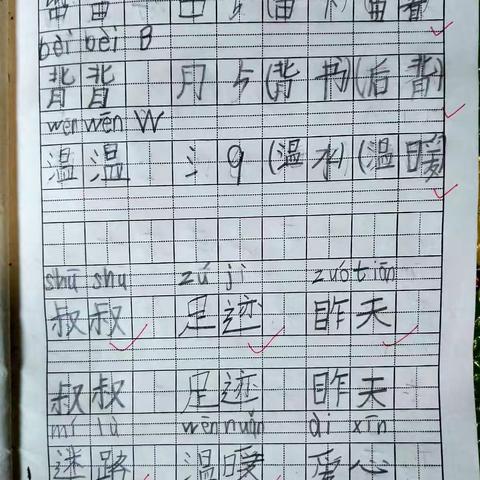 bèi bèi B
背 背 月 5 (背 书) (后 背)
wēn wēn W
温 温 氵 9 (温 水) (温 暖)
shū shu zú jì zuó tiān
叔 叔 足 迹 昨 天
叔 叔 足 迹 昨 天
mí lù wēn nuǎn ài xīn
迷 路 温 暖 爱 心